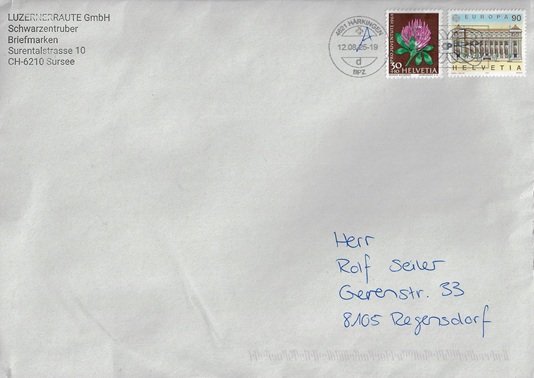 LUZERNERRAUTE GmbH
Schwarzentruber
Briefmarken
Surentalstrasse 10
CH-6210 Sursee
4621 HÄRKINGEN
12.08.25-19
d
BPZ
30+10 HELVETIA
EUROPA 90
HELVETIA
Herr
Rolf Seiler
Gerenstr. 33
8105 Regensdorf